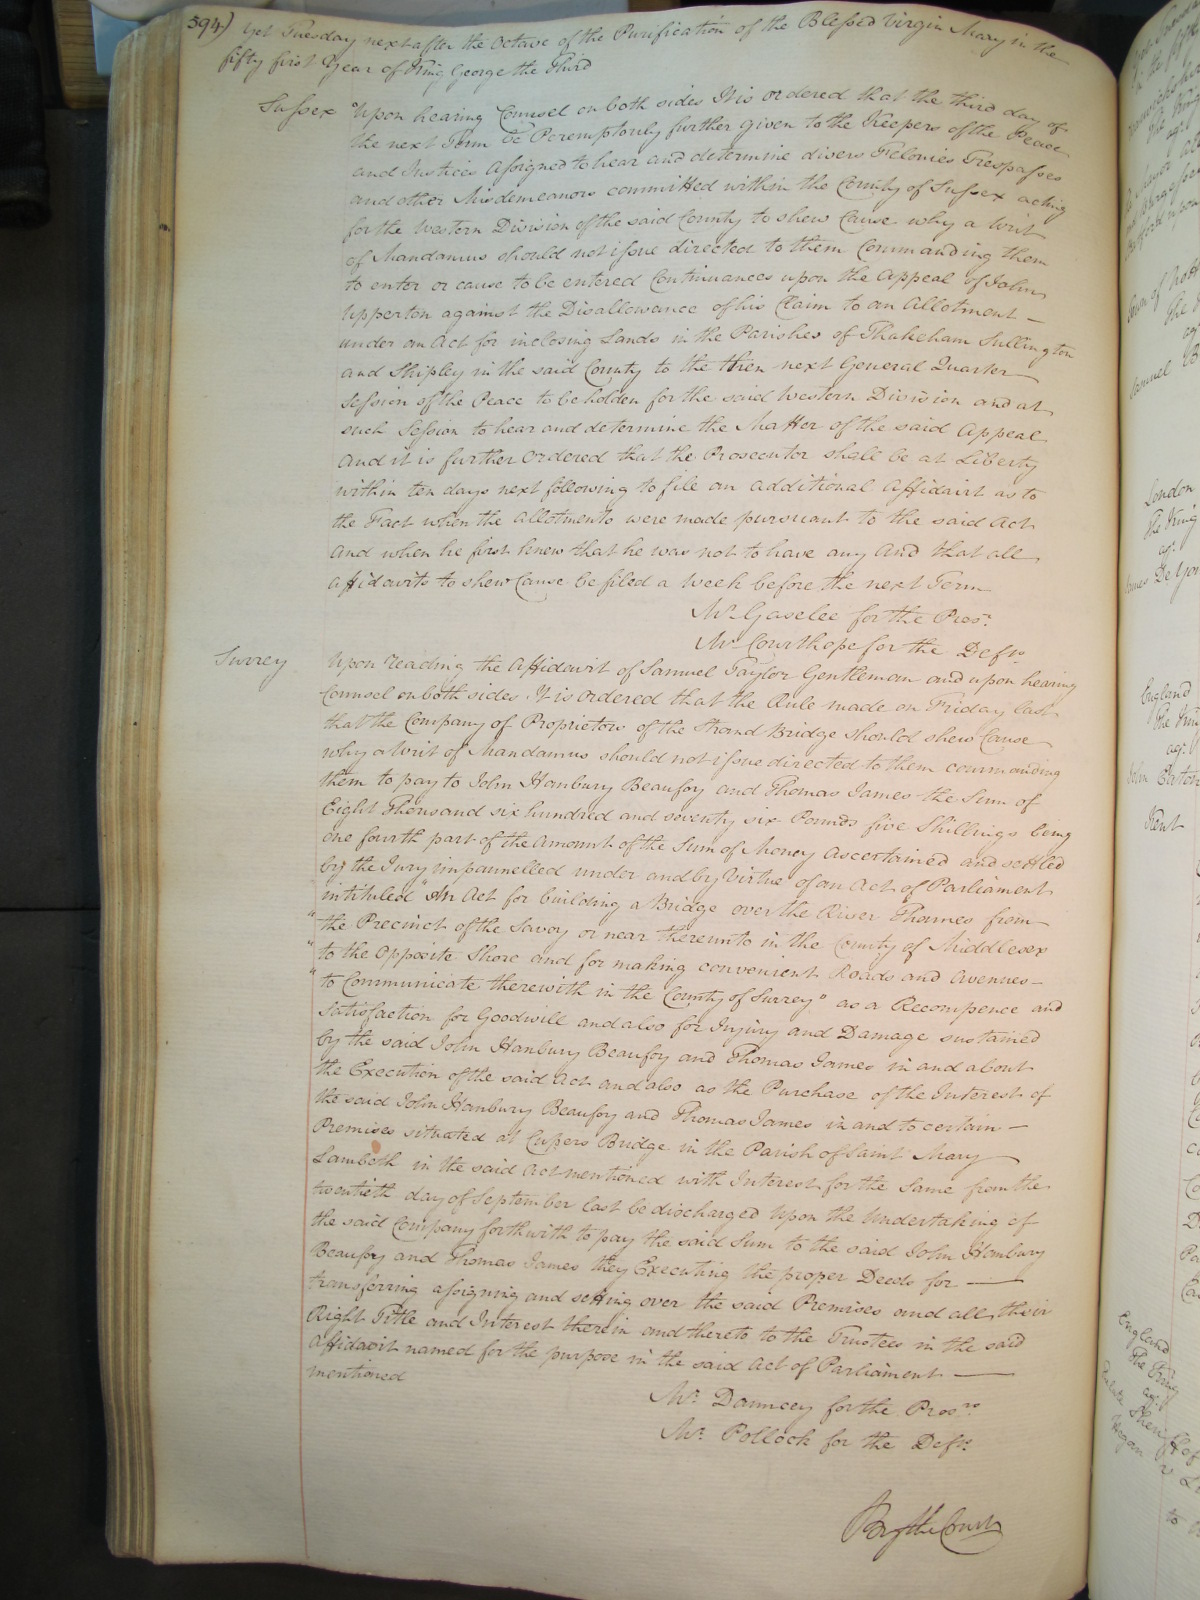 594) Yet Tuesday next after the Octave of the Purification of the Blessed Virgin Mary in the
fifty first Year of King George the Third
Sussex Upon hearing Counsel on both sides It is ordered that the third day of
the next Term be Peremptorily further given to the Keepers of the Peace
and Justices Assigned to hear and determine divers Felonies Trespasses
and other Misdemeanors committed within the County of Sussex acting
for the Western Division of the said County to shew Cause why a Writ
of Mandamus should not issue directed to them Commanding them
to enter or cause to be entered Continuances upon the Appeal of John
Upperton against the Disallowance of his Claim to an Allotment
under an Act for inclosing Lands in the Parishes of Thakeham Sullington
and Shipley in the said County to the then next General Quarter
Session of the Peace to be holden for the said Western Division and at
such Session to hear and determine the Matter of the said Appeal
And it is further Ordered that the Prosecutor shall be at Liberty
within ten days next following to file an additional Affidavit as to
the Fact when the allotments were made pursuant to the said Act
and when he first knew that he was not to have any And that all
affidavits to shew Cause be filed a Week before the next Term
Mr. Gaselee for the Pros.r
Mr. Courthope for the Defts.
Surrey Upon reading the Affidavit of Samuel Taylor Gentleman and upon hearing
Counsel on both sides It is ordered that the Rule made on Friday last
that the Company of Proprietors of the Strand Bridge should shew Cause
why a Writ of Mandamus should not issue directed to them commanding
them to pay to John Hanbury Beaufoy and Thomas James the Sum of
Eight Thousand six hundred and seventy six Pounds five Shillings being
one fourth part of the Amount of the Sum of Money Ascertained and settled
by the Jury impannelled under and by Virtue of an Act of Parliament
intituled "An Act for building a Bridge over the River Thames from
"the Precinct of the Savoy or near thereunto in the County of Middlesex
"to the Opposite Shore and for making convenient Roads and Avenues
"to Communicate therewith in the County of Surrey" as a Recompence and
Satisfaction for Goodwill and also for Injury and Damage sustained
by the said John Hanbury Beaufoy and Thomas James in and about
the Execution of the said Act and also as the Purchase of the Interest of
the said John Hanbury Beaufoy and Thomas James in and to certain
Premises situated at Cupers Bridge in the Parish of Saint Mary
Lambeth in the said Act mentioned with Interest for the same from the
twentieth day of September last be discharged Upon the Undertaking of
the said Company forthwith to pay the said Sum to the said John Hanbury
Beaufoy and Thomas James they Executing the proper Deeds for
transferring assigning and setting over the said Premises and all their
Right Title and Interest therein and thereto to the Trustees in the said
Affidavit named for the purpose in the said Act of Parliament
mentioned
Mr. Dauncey for the Pros.rs
Mr. Pollock for the Defts.
By the Court
London
The King
England
Kent
England
The King